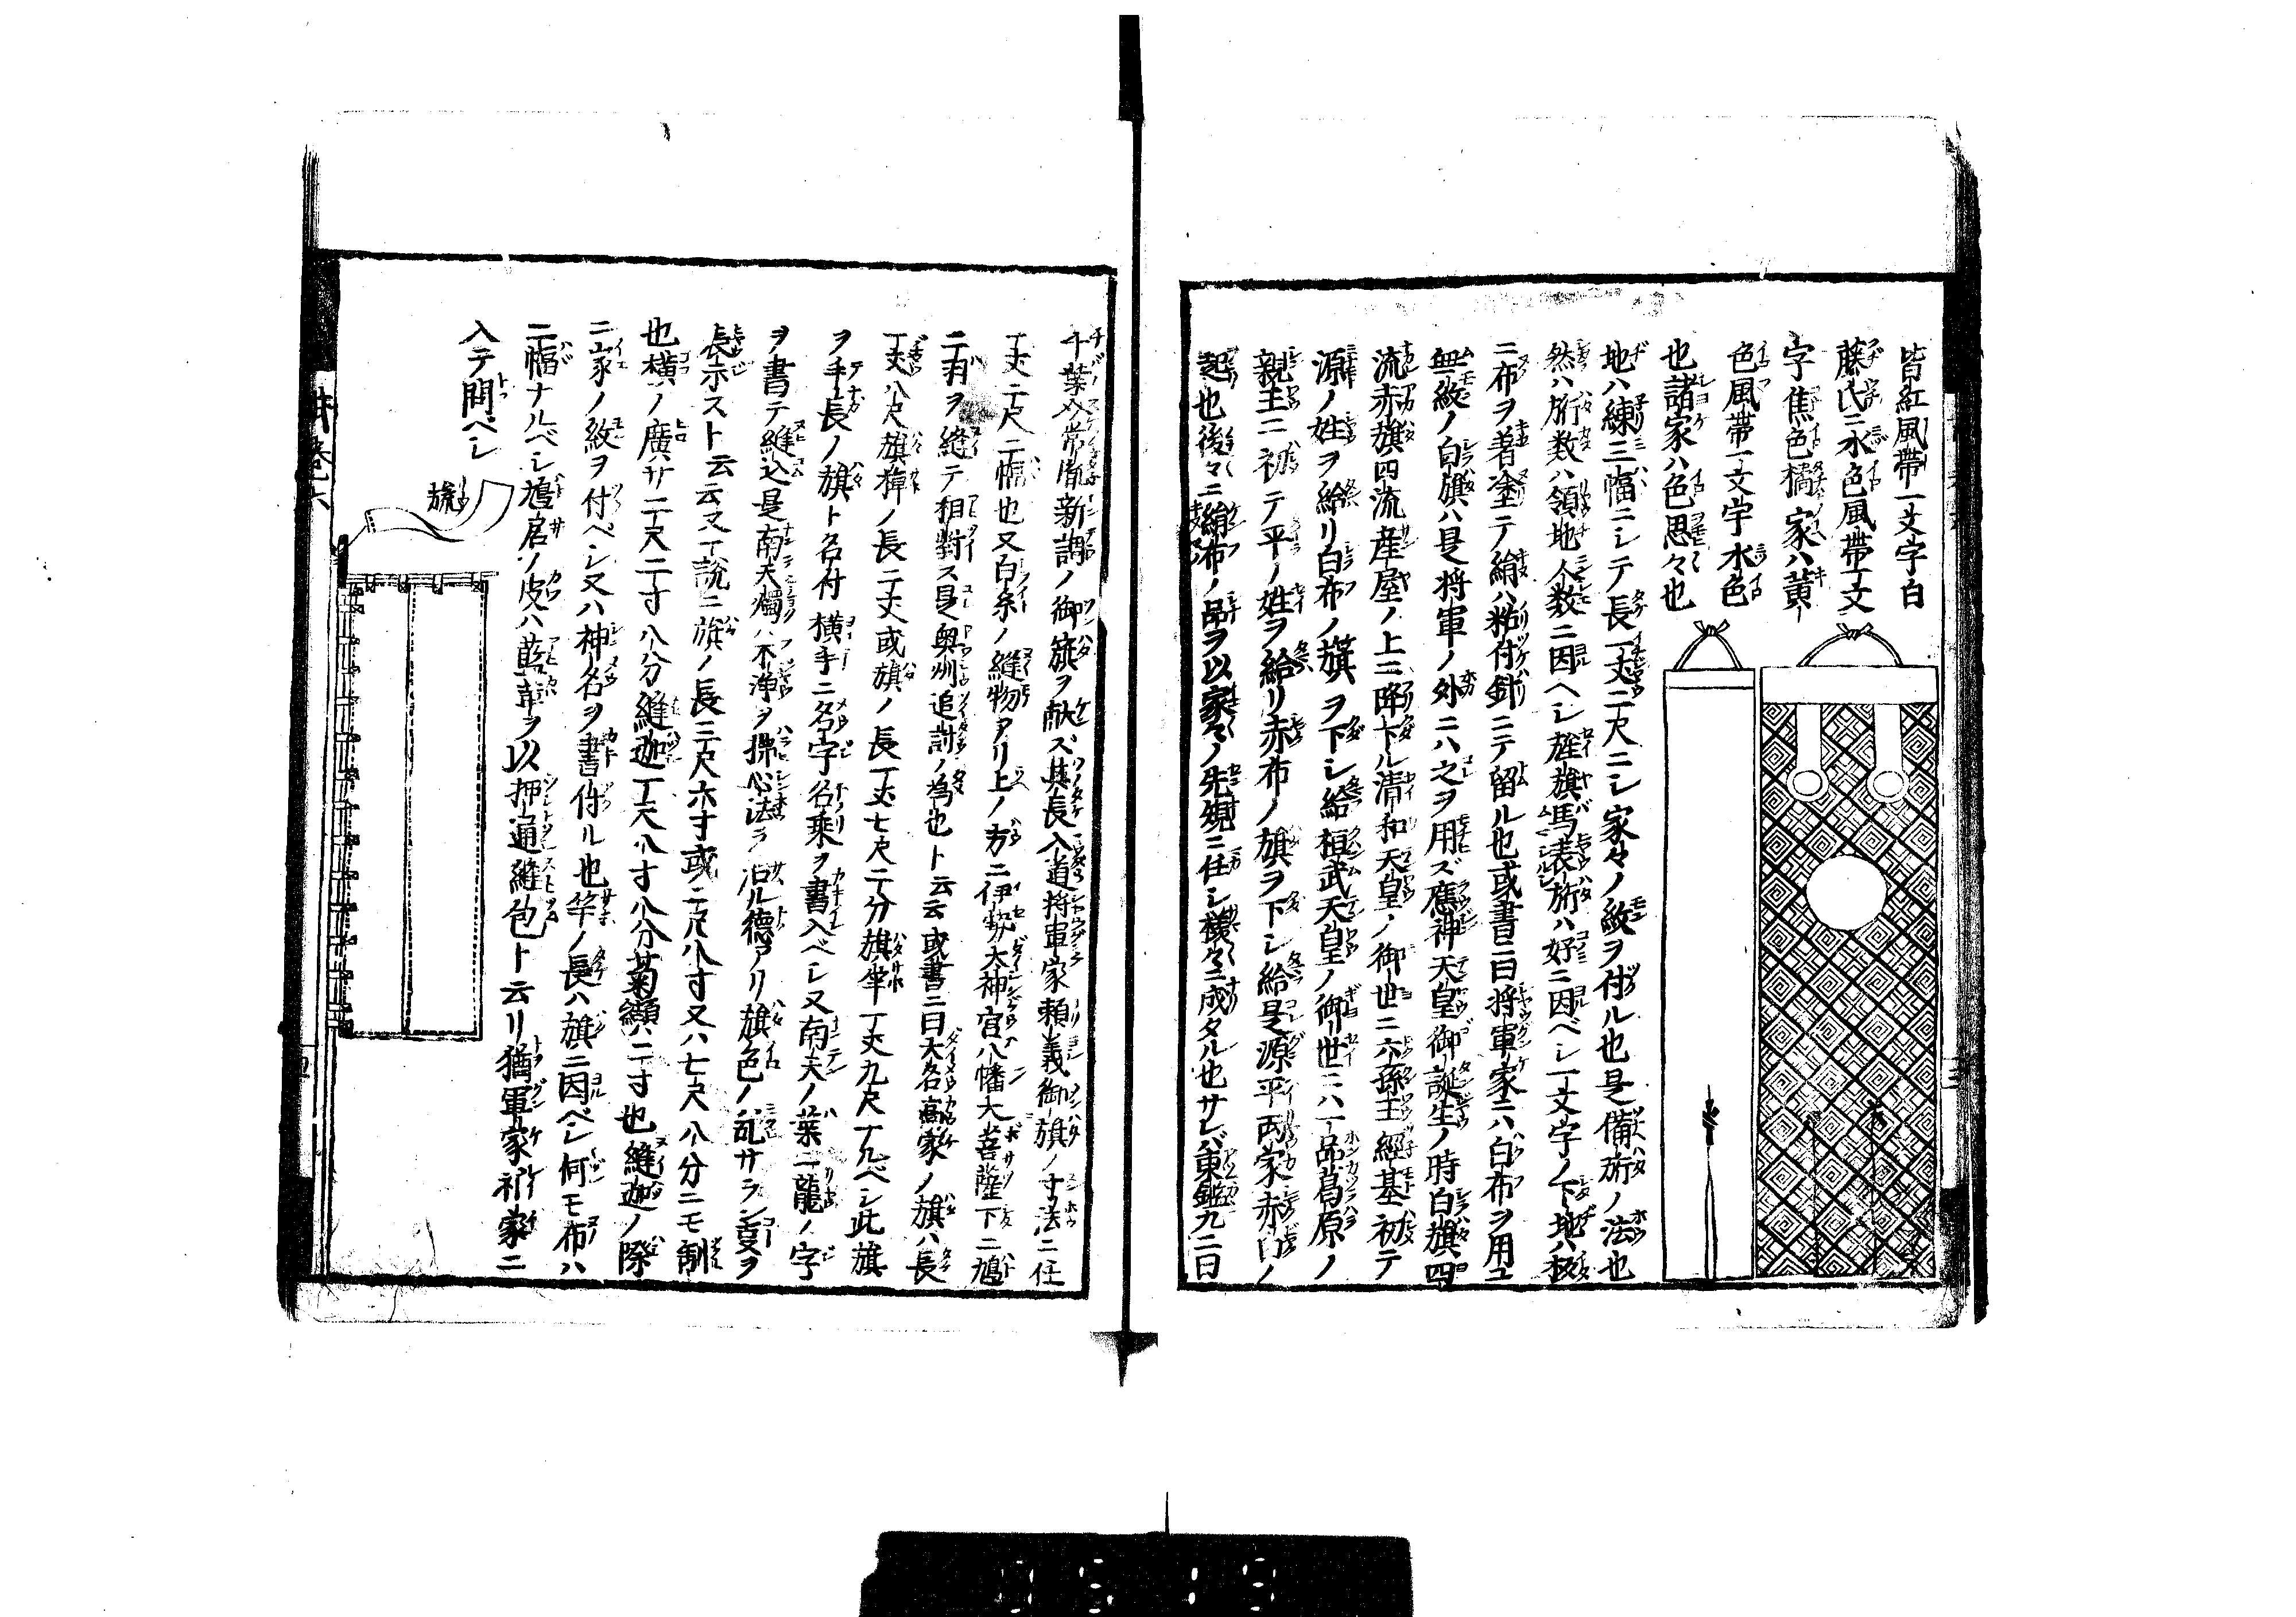 皆紅風帯一文字白
藤氏ニ水色風帯一文
字焦色橘家ハ黄
色風帯一文字水色
也諸家ハ色思々也
地ハ練三幅ニシテ長一丈二尺ニシ家々ノ紋ヲ付ル也是備旂ノ法也
然ハ旂数ハ領地人数ニ因ヘシ旌旗馬表旂ハ好ニ因ベシ一文字ノ下地ハ板
ニ布ヲ著塗テ絹ハ粘付針ニテ留ル也或書ニ曰将軍家ニハ白布ヲ用ユ
無紋ノ白旗ハ是将軍ノ外ニハ之ヲ用ズ應神天皇御誕生ノ時白旗四
流赤旗四流産屋ノ上ニ降下ル清和天皇ノ御世ニ六孫王經基初テ
源ノ姓ヲ給リ白布ノ旗ヲ下シ給桓武天皇ノ御世ニハ一品葛原ノ
親王ニ初テ平ノ姓ヲ給リ赤布ノ旗ヲ下シ給是源平両家赤白ノ
起也後々ニ絹布ノ品ヲ以家々ノ先規ニ任シ様々ニ成タル也サレバ東鑑九ニ曰
千葉介常胤新調ノ御旗ヲ献ズ其長入道将軍家頼義御旗ノ寸法ニ任
一丈二尺二幅也又白糸ノ縫物アリ上ノ方ニ伊勢大神宮八幡大菩薩下ニ鳩
二羽ヲ縫テ相對ス是奥州追討ノ為也ト云云或書ニ曰大名高家ノ旗ハ長
一丈八尺旗棹ノ長二丈或旗ノ長一丈七尺二分旗竿一丈九尺一九ベシ此旗
ヲ手長ノ旗ト名付横手ニ名字名乗ヲ書入ベシ又南天ノ葉ニ龍ノ字
ヲ書テ縫込是南天燭ハ不浄ヲ拂心法ヲ沿ル德アリ旗色ノ乱サラン叓ヲ
長示スト云云又一説ニ旗ノ長三尺六寸或二尺八寸又ハ七尺八八分ニモ制
也横ノ廣サ二尺二寸八分縫迦一丈八寸八分菊纈ハ二寸也縫迦ノ際
ニ家ノ紋ヲ付ベシ又ハ神名ヲ書付ル也竿ノ長ハ旗ニ因ベシ何モ布ハ
二幅ナルベシ鳩居ノ皮ハ藍革ヲ以押通縫包ト云リ猶軍家祈家ニ
入テ問ベシ
旒